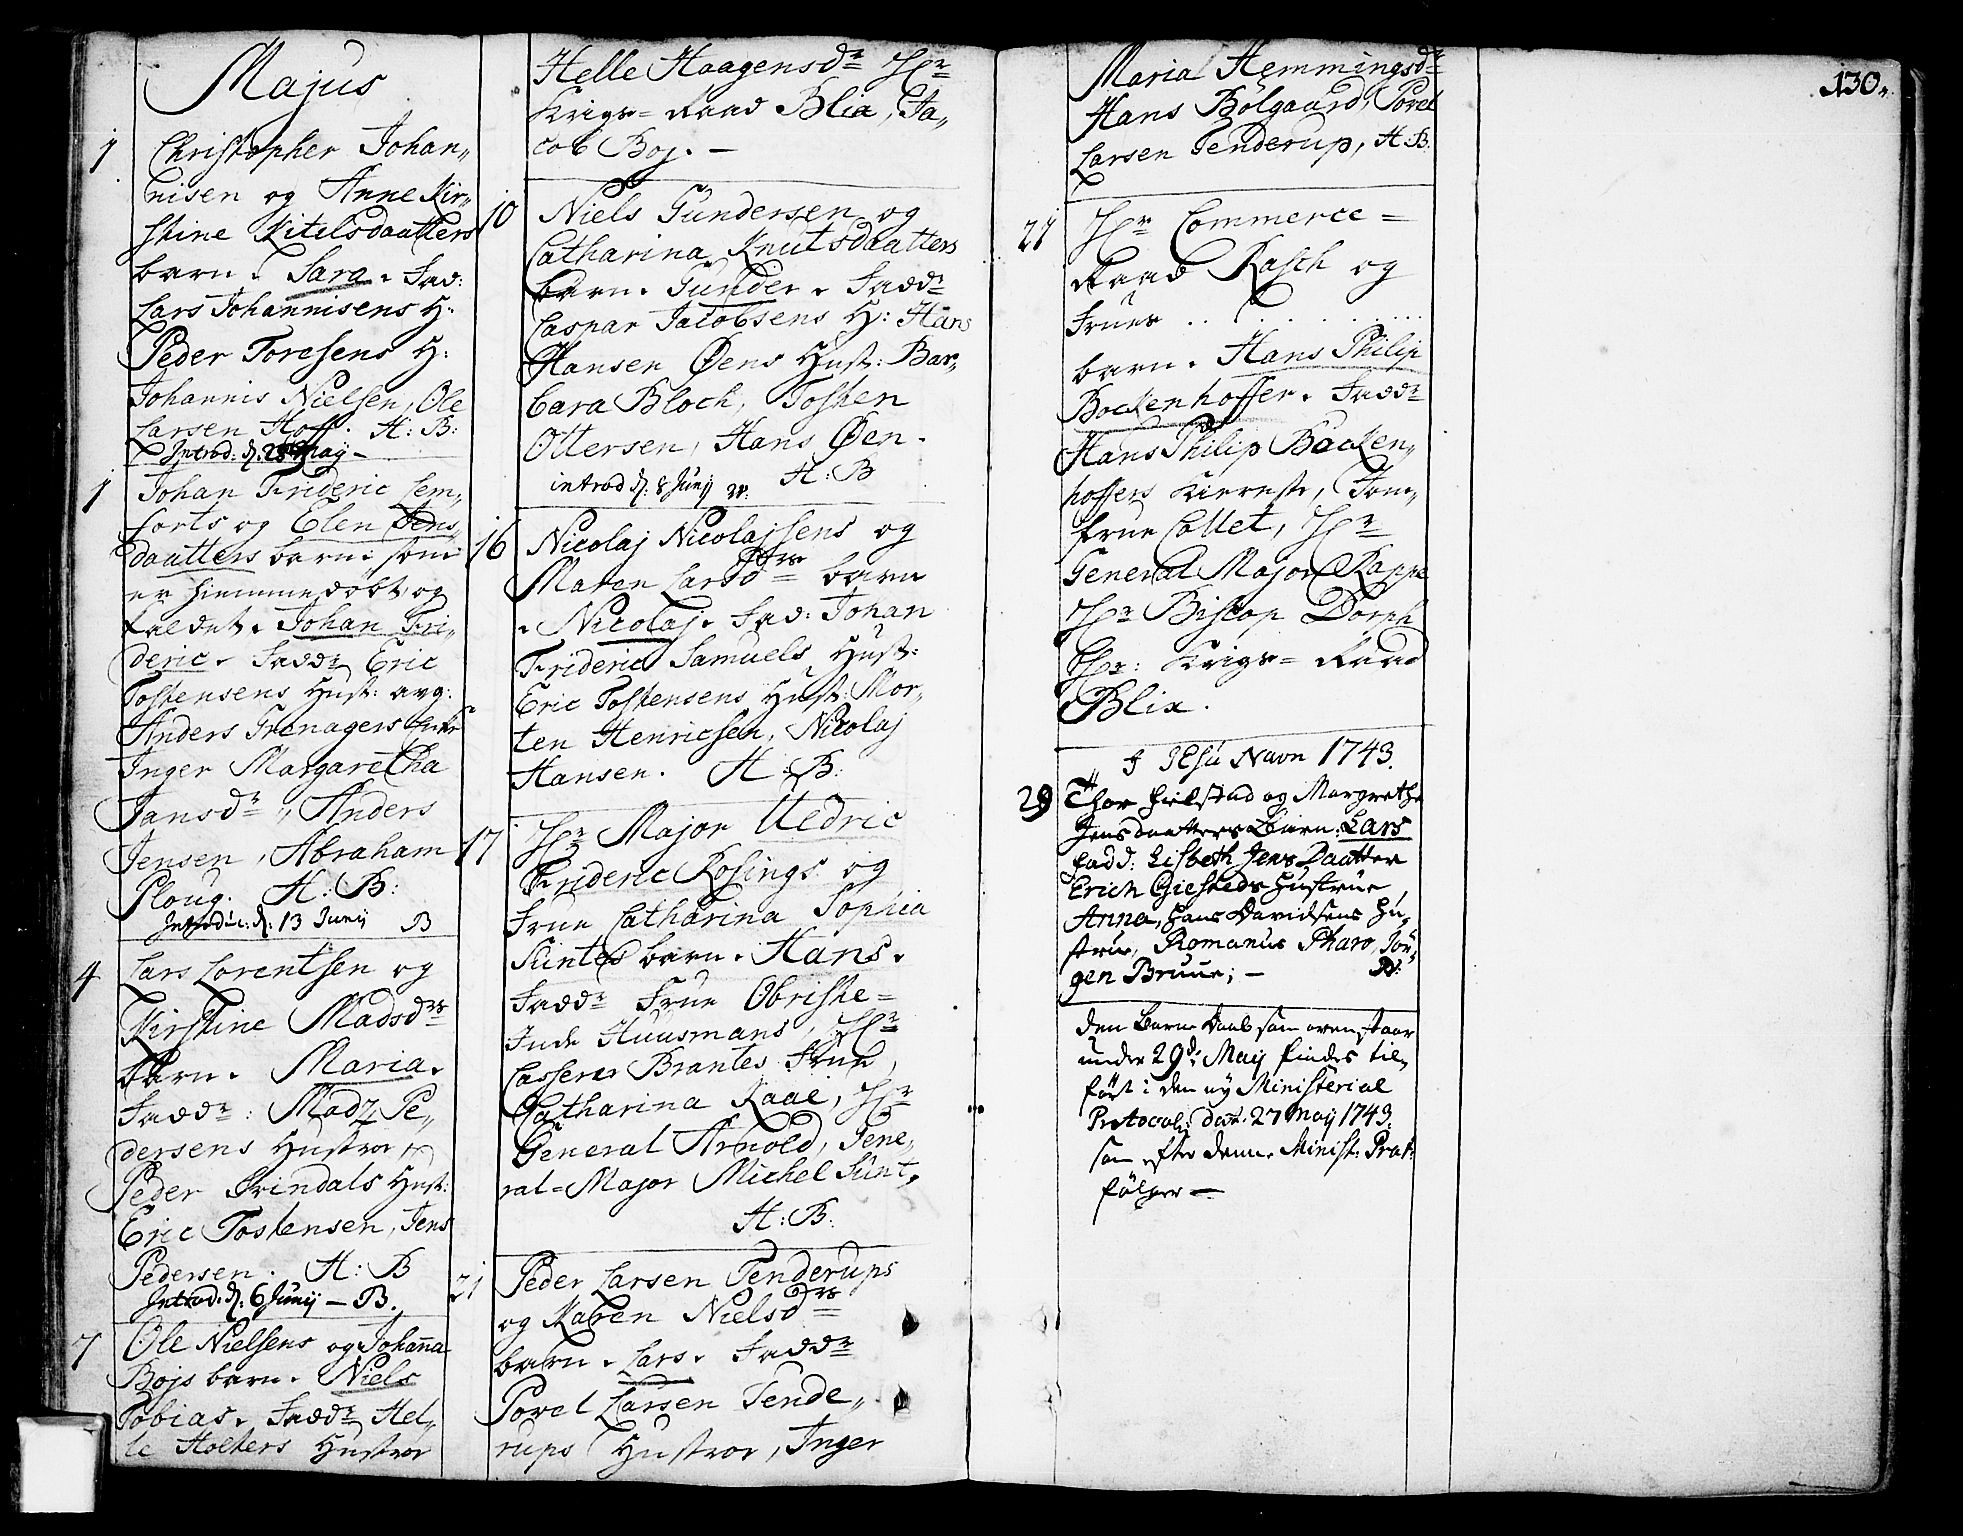 Majus
1 Christopher Johan„
nisen og Anne Kir„
stine Kitelsdaatters
barn. Sara. Fad:
Lars Johannisens H:
Peder Toresens H:
Johannis Nielsen, Ole
Larsen Hoff. H: B:
Introd: d. May –
1 Johan Frideric Lem„
forts og Elen Jens„
daatters barn, som
er hiemmedøbt og
kaldet. Johan Fri„
deric. Faddr Eric
Tostensens Hust: avg:
Anders Grenagers
Inger Margaretha
Jansdr, Anders
Jensen, Abraham
Ploug. H: B:
Introduc: d: 13 Junij B
4 Lars Lorentsen og
Kirstine Madsdrs
barn. Maria.
Faddr: Madz Pe„
dersens Hustroe
Peder Svindals Hust:
Eric Tostensen, Jens
Pedersen. H: B
Introd: d: 6 Junij – B.
7 Ole Nielsens og Johanna
Bojs barn. Niels
Tobias. Faddr Hel„
le Holkers Hustroe
Helle Haagensdr Hr
Krigs= Raad Blix, Ja„
cob Boj. –
10 Niels Gundersen og
Catharina Knutsdaatters
barn. Gunder. Faddr
Caspar Jacobsens H: Hans
Hansen Øens Hust: Bar„
bara Bloch, Tosten
Ottersen, Hans Øen.
introd d: 8 Junij H: B
16 Nicolaj Nicolajsens og
Maren Larsdrs barn
. Nicolaj. Fad: Johan
Frideric Samuels Hust:
Eric Tostensens Hust: Mor„
ten Henricsen, Nicolaj
Hansen. H: B:
17 Hr Major Uldric
Frideric Rosings og
Frue Catharina Sophia
Suntes barn. Hans.
Faddr Frue Obriste=
Inde Huusmans, Hr
Casserer Brantes Frue,
Catharina Raae, Hr
General Arnold, Gene„
ral=Major Michel Sunt,
H: B:
21 Peder Larsen Tenderups
og Karen Nielsdrs
barn. Lars. Faddr
Povel Larsen Tende„
rups Hustroe, Inger
Maria Hemmingsdr
Hans Bølgaard, Povel
Larsen Tenderup, H: B:
21 Hr Commerce=
Raad Rasch og
Frues . . . . . . . .
barn. Hans Philip
Bockenhoffer. Faddr
Hans Philip Bocken„
hoffers Kiereste, Jom„
frue Collet, Hr
General Major Kappe
Hr Biscop Dorph
Hr: Krigs= Raad
Blix.
J JEsu Navn 1743.
29 Thor Fielstad og Margrethe
Jensdaatters Barn. Lars
Fadd: Lisbeth Jens Daatter
Erich Gielsteds Hustrue,
Anna, Hans Davidsens Hu„
strue, Romanus Pharo, Jør„
gen Bruue; – B:
Den Barne Daab som ovenstaar
under 29d: Maij findes til„
ført i den ny Ministerial
Protocoll: dat: 27 Maij 1743.
som efter denne Minist: Prot:
følger –
130.